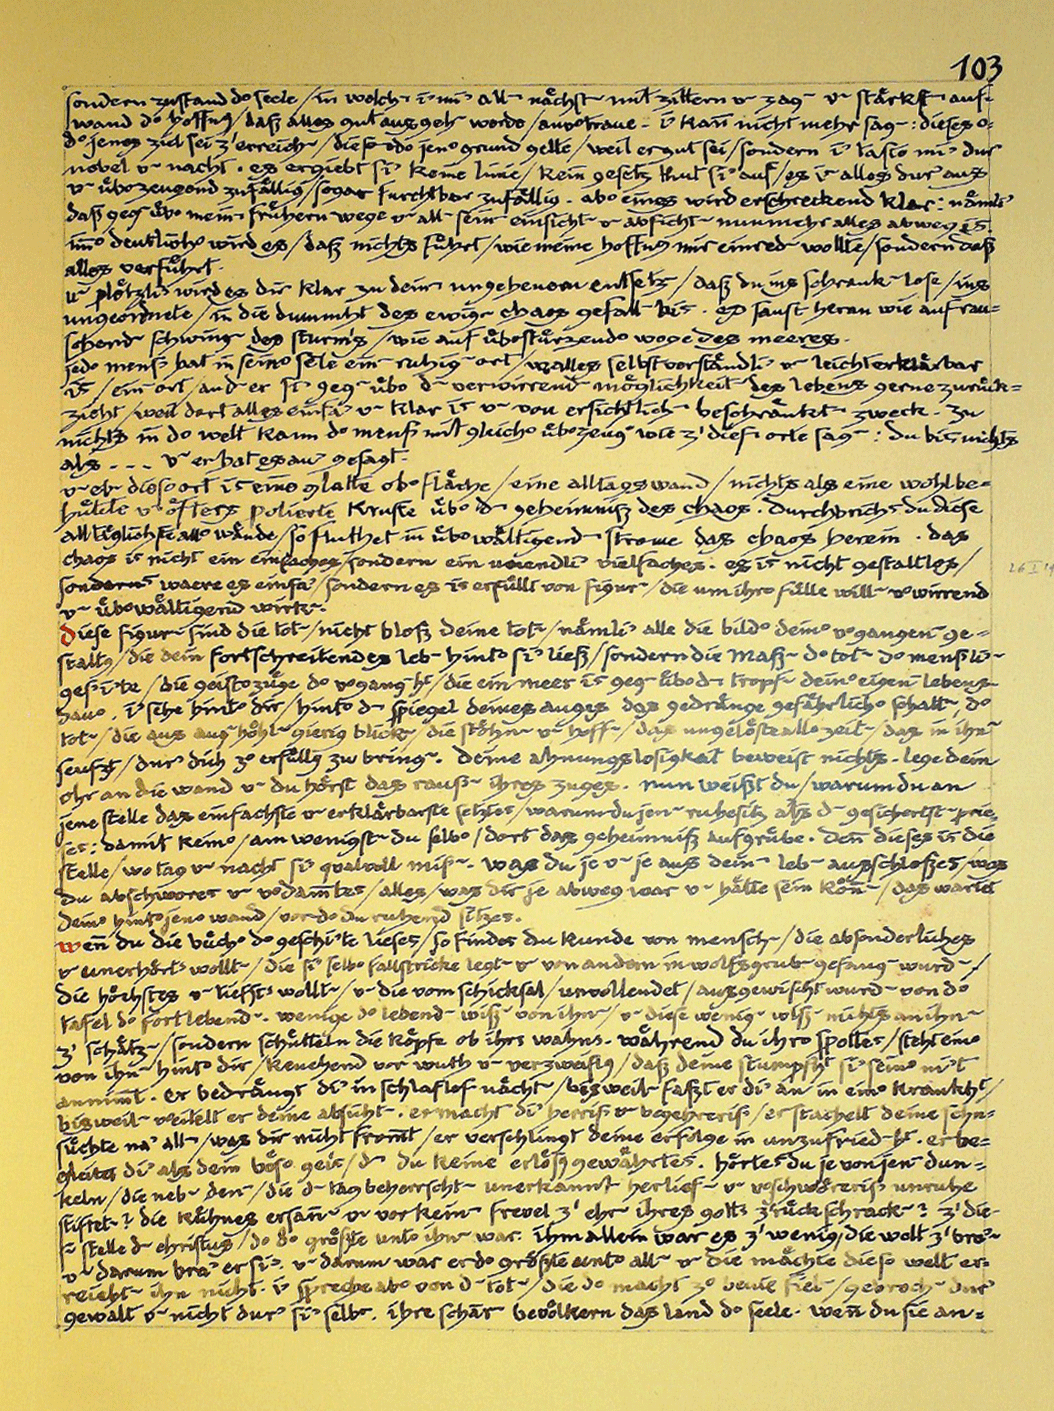 103
sondern zustand d° seele / in welch' i' mi' all- nächst- mit zittern u- zag- u- stärkst auf-
wand d° hoffng / daß alles gut ausgeh- werde / anvertraue. i' kañ nicht mehr sag-: dieses o-
d° jenes ziel sei z' erreich- / dies° od° jen° grund gelte / weil er gut sei / sondern i' taste mi' dur'
nebel u- nacht. es ergiebt si' keine linie / kein gesetz thut si' auf / es i's alles dur'aus
u- üb°zeugend zufällig / sogar furchtbar zufällig. ab° eines wird erschreckend klar: nämli'
daß geg- üb° mein- frühern wege u- all- sein- einsicht- u- absicht- nunmehr alles abweg i's.
im° deutlich° wird es / daß nichts führt / wie meine hoffng mir einred- wollte / sondern daß
alles verführt.
u- plötzli' wird es dir klar zu dein- ungeheuern entsetz- / daß du ins schrank-lose / ins
ungeordnete / in die dummht des ewig- chaos gefall- bis. es saust heran wie auf rau-
schend- schwing- des sturms / wie auf üb°stürzend° woge des meeres.
jed° mensch hat in sein° sele ein- ruhig- ort / wo alles selbstverständli' u- leicht erklärbar
is / ein ort / an d- er si' geg-üb° d- verwirrend- möglichkeit- des lebens gerne zurück=
zieht / weil dort alles einfa' u- klar is u- von ersichtlich- beschränkt- zweck. zu
nichts in d° welt kann d° mensch mit gleich° üb°zeugg wie z' dies- orte sag-: du bis nichts
als . . . u- er hat es au' gesagt.
u- eb- dies° ort is eine glatte ob°fläche / eine alltagswand / nichts als eine wohlbe-
hütete u- öfters polierte kruste üb° d- geheimniß des chaos. durchbrichs du diese
alltäglichste all° wände / so fluthet in üb°wältigend- strome das chaos herein. das
chaos is nicht ein einfaches / sondern ein unendli' vielfaches. es is nicht gestaltlos /
sonderns waere es einfa' / sondern es is erfüllt von figur- / die um ihr° fülle will- v°wirrend
u- üb°wältigend wirk-.
diese figur- sind die tot- / nicht bloß deine tot- / nämli' alle die bild° dein° v°gangen- ge-
staltg / die dein fortschreitendes leb- hint° si' ließ / sondern die maß- d° tot- d° mensch li'-
geschi'te / die geist°züge d° v°gang-ht / die ein meer is geg-üb° d- tropf- dein° eigen- lebens-
dau°. i' sehe hint° dir / hint° d- spiegel deines auges das gedränge gefährlich° schatt- / d°
tot- / die aus ausgehöhlt- gierig blick- / die stöhn- u- hoff- / das ungelöste all° zeit- / das in ihn-
seufzt / dur' dich z° erfüllg zu bring-. deine ahnungslosigkeit beweist nichts. lege dein
ohr an die wand u- du hörst das rausch- ihres zuges. nun weißt du / warum du an
jene stelle das einfachste u- erklärbarste setztes / warum du jen- ruhesitz als d- gesichertst- prie-
ses: damit kein° / am wenigst- du selb° / dort das geheimniß aufgrübe. deñ dieses is die
stelle / wo tag u- nacht si' qualvoll misch-. was du je u- je aus dein- leb- ausschloßes / was
du abschwores u- v°damtes / alles / was dir je abweg war u- hätte sein köñ- / das wartet
dein° hint° jen° wand / vor d° du ruhend sitzes.
weñ du die büch° d° geschi'te lieses / so findes du kunde von mensch- / die absonderliches
u- unerhörts wollt- / die si' selb° fallstricke legt- u- von andern in wolfsgrub- gefang- wurd- /
die höchstes u- tiefsts wollt- / u- die vom schicksal / unvollendet / ausgewischt wurd- von d°
tafel d° fortlebend-. wenige d° lebend- wiß- von ihn- / u- diese wenig- wiß- nichts an ihn-
z' schätz- / sondern schütteln die köpfe ob ihrs wahns. während du ihr° spottes / steht ein°
von ihn- hint° dir / keuchend vor wuth u- verzweiflg / daß deine stumpfht si' sein° ni't
annimt. er bedrängt di' in schlaflos- nächt- / bisweil- faßt er di' an in ein° krankht /
bisweil- v°eitelt er deine absicht-. er macht di' herrisch u- begehrerisch / er stachelt deine sehn-
süchte na' all- / was dir nicht fromt / er verschlingt deine erfolge in unzufried-ht. er be=
gleitet di' als dein bös° geis / d- du keine erlösg gewährtes. hörtes du je von jen- dun-
keln / die neb- den- / die d- tag beherrscht- unerkannt herlief- u- v°schwörerisch unruhe
stiftet-? die kühnes ersañ- u- vor kein- frevel z' ehr- ihres gotts z'rückschrack-? z' die-
s- stelle d- christus / d° d° größte unt° ihn- war. ihm allein war es z' wenig / die welt z' bre'-
u- darum bra' er si'. u- darum war er d° größte unt° all- u- die mächte dies° welt er-
reicht- ihn nicht. i' spreche ab° von d- tot- / die d° macht z° beute fiel- / gebroch- dur'
gewalt u- nicht dur' si' selbs. ihre schar- bevölkern das land d° seele. weñ du sie an-